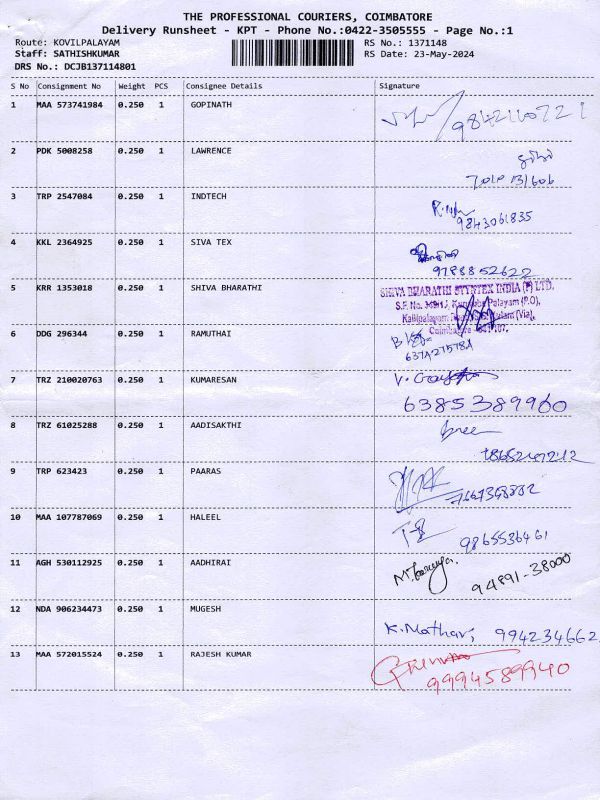 THE PROFESSIONAL COURIERS, COIMBATORE
Delivery Runsheet - KPT - Phone No.:0422-3505555 - Page No.:1
Route: KOVILPALAYAM
RS No.: 1371148
Staff: SATHISHKUMAR
RS Date: 23-May-2024
DRS No.: DCJB137114801
S No Consignment No Weight PCS Consignee Details Signature
1 MAA 573741984 0.250 1 GOPINATH
2 PDK 5008258 0.250 1 LAWRENCE
3 TRP 2547084 0.250 1 INDTECH
9843061835
4 KKL 2364925 0.250 1 SIVA TEX
9788852622
5 KRR 1353018 0.250 1 SHIVA BHARATHI
SHIVA BHARATHI SYNTEX INDIA (P) LTD.
S.F. No. Palayam (P.O),
(Via),
6 DDG 296344 0.250 1 RAMUTHAI
7 TRZ 210020763 0.250 1 KUMARESAN
6385389960
8 TRZ 61025288 0.250 1 AADISAKTHI
9 TRP 623423 0.250 1 PAARAS
10 MAA 107787069 0.250 1 HALEEL
9865536461
11 AGH 530112925 0.250 1 AADHIRAI
94891-38000
12 NDA 906234473 0.250 1 MUGESH
K. Mathavi, 994234662
13 MAA 572015524 0.250 1 RAJESH KUMAR
9994589940